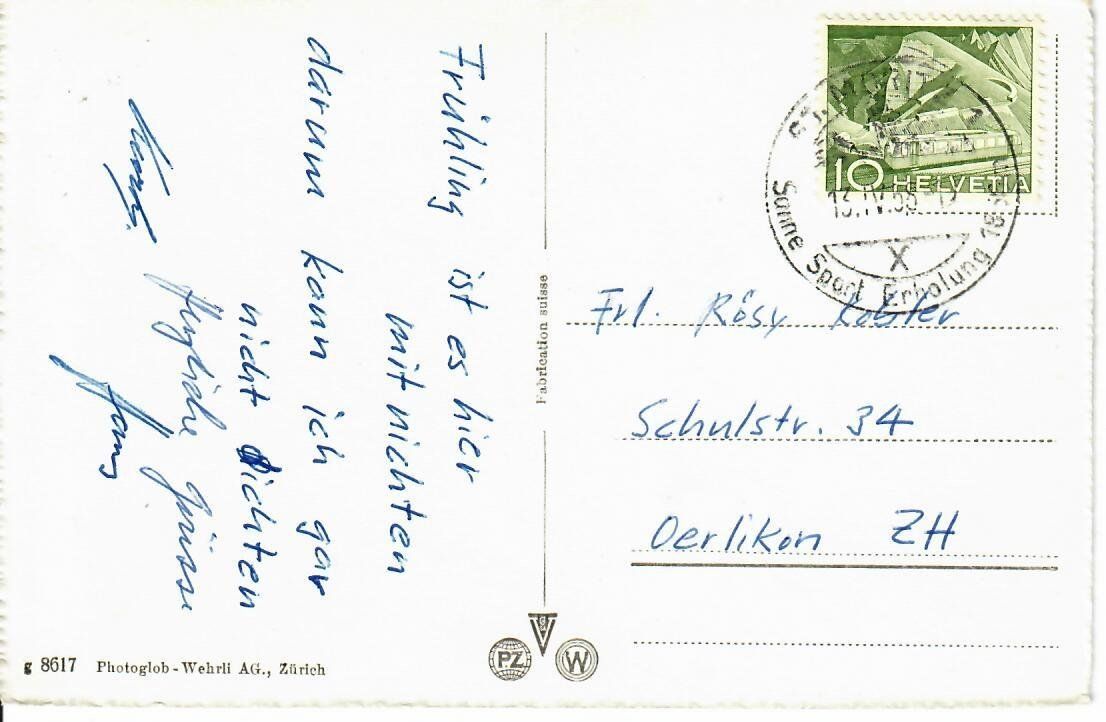 Frühling ist es hier
mit nichten
darum kann ich gar
nicht dichten
Herzliche Grüsse
Hans
Fabrication suisse
10 HELVETIA
ST. MORITZ
13. IV. 55
Sonne Sport Erholung
Frl. Rösy Kobler
Schulstr. 34
Oerlikon ZH
PZ
W
g 8617 Photoglob-Wehrli AG., Zürich